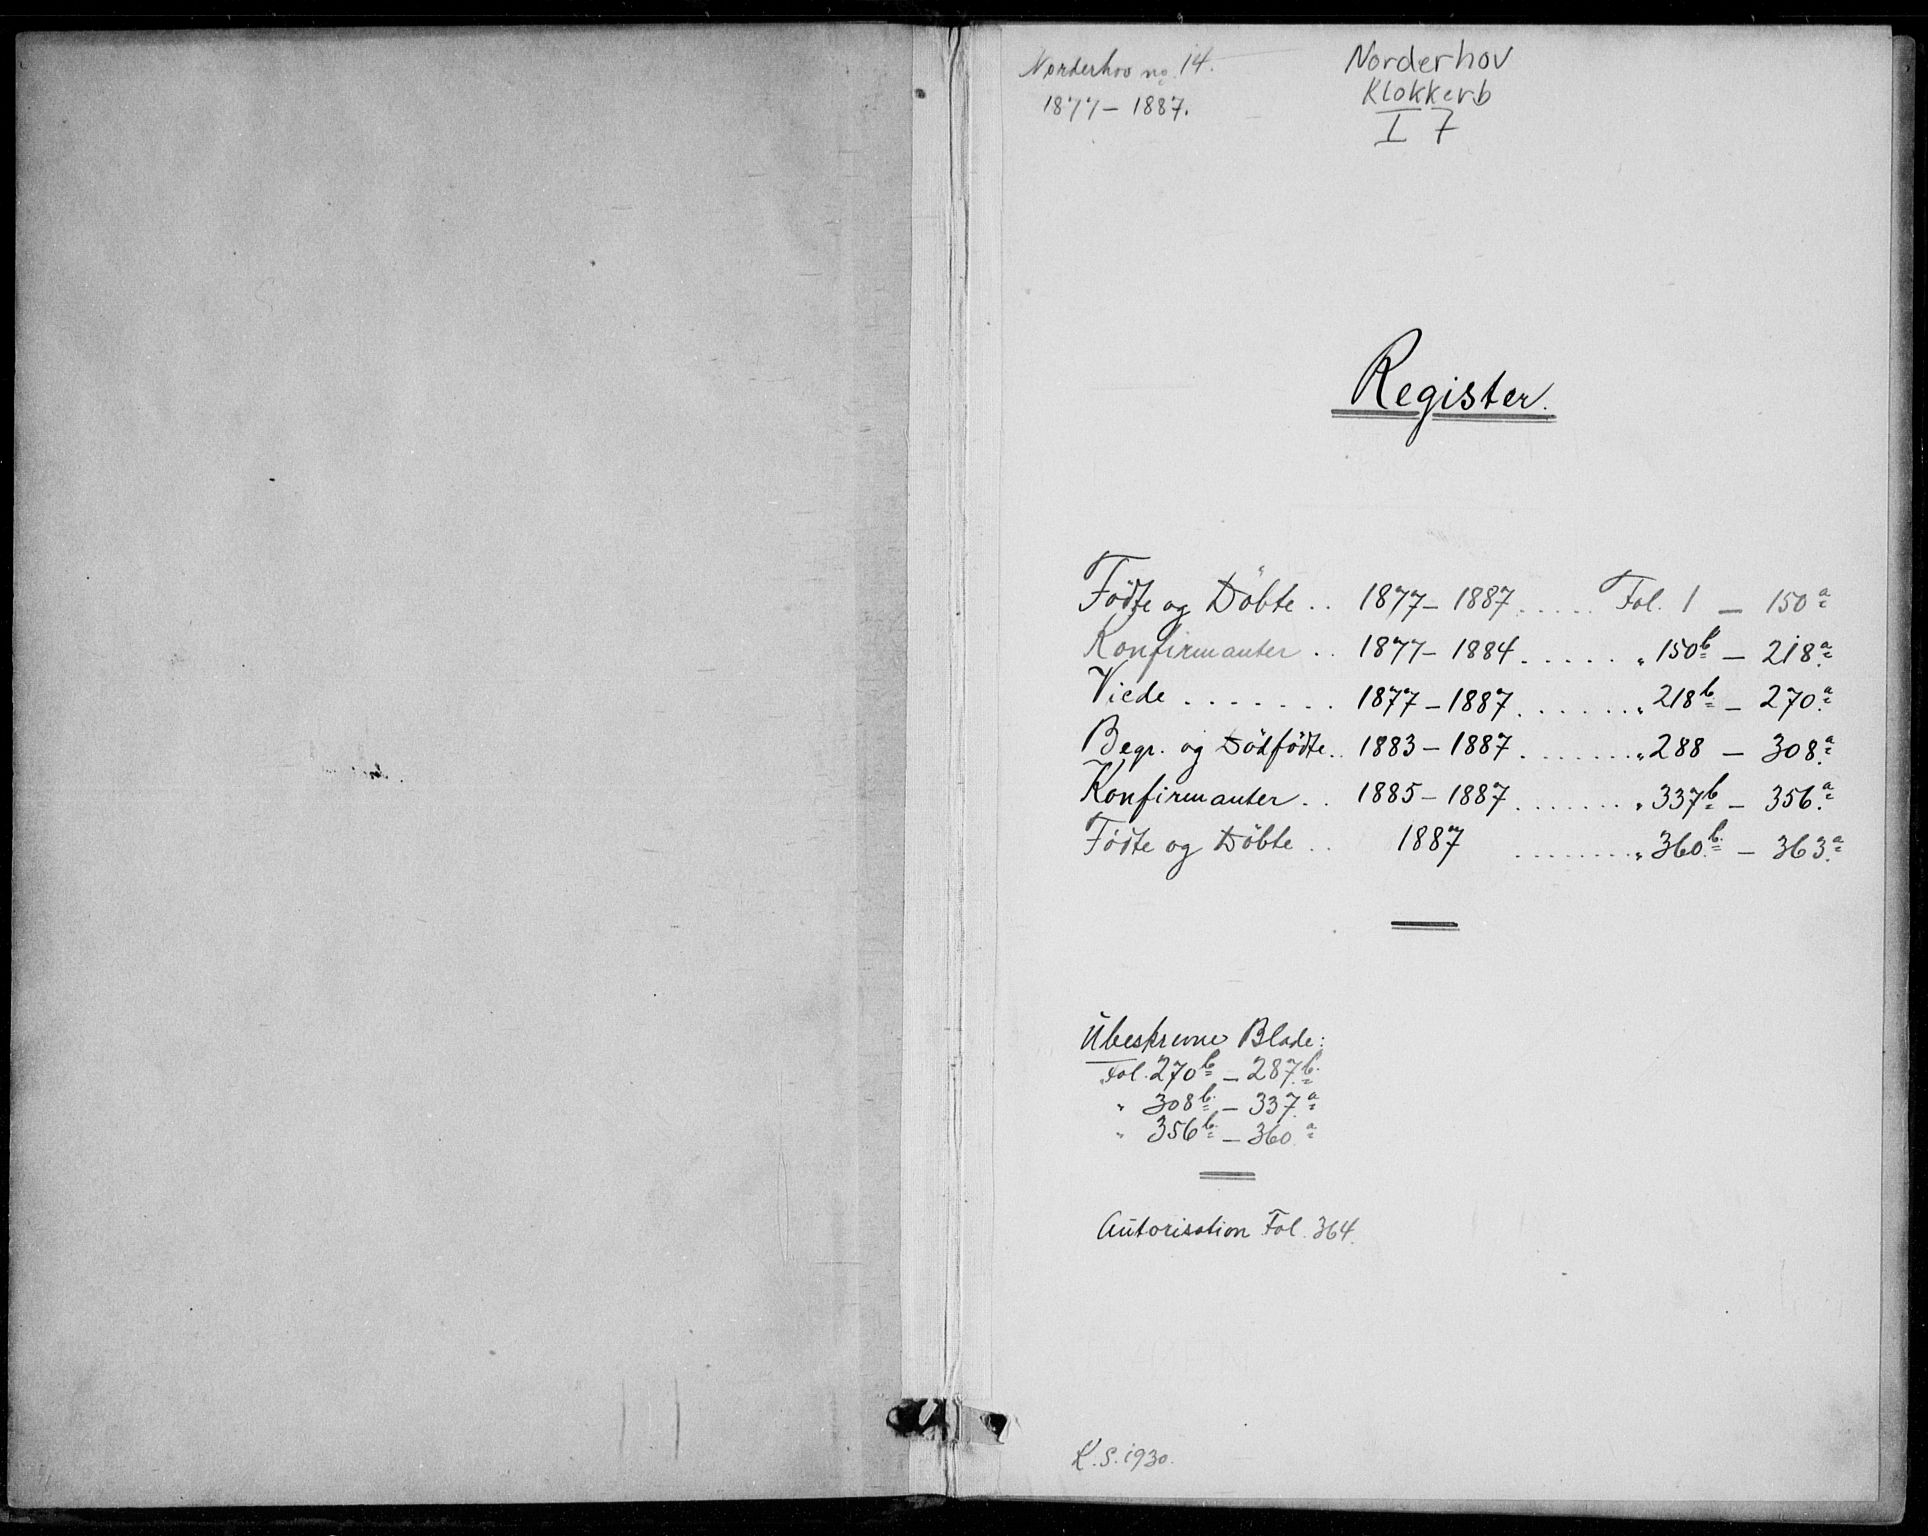 Norderhov no. 14.
1877 – 1887.
Norderhov
Klokkerb
I 7
Register.
Födte og Döbte . . 1877 – 1887 . . . . . Fol. 1 – 150 a
Konfirmanter . . 1877 – 1884 . . . . . . „ 150 b – 218 a
Viede . . . . . . . 1877 – 1887 . . . . . . „ 218 b – 270 a
Begr. og Dödfödte . . 1883 – 1887 . . . . . . . „ 288 – 308 a
Konfirmanter . . 1885 – 1887 . . . . . . . „ 337 b – 356 a
Födte og Döbte . . 1887 . . . . . . . . „ 360 b – 363 a
Ubeskrevne Blade:
Fol. 270 b – 287 b
„ 308 b – 337 a
„ 356 b – 360 a
Autorisation Fol. 364.
K. S. 1930.